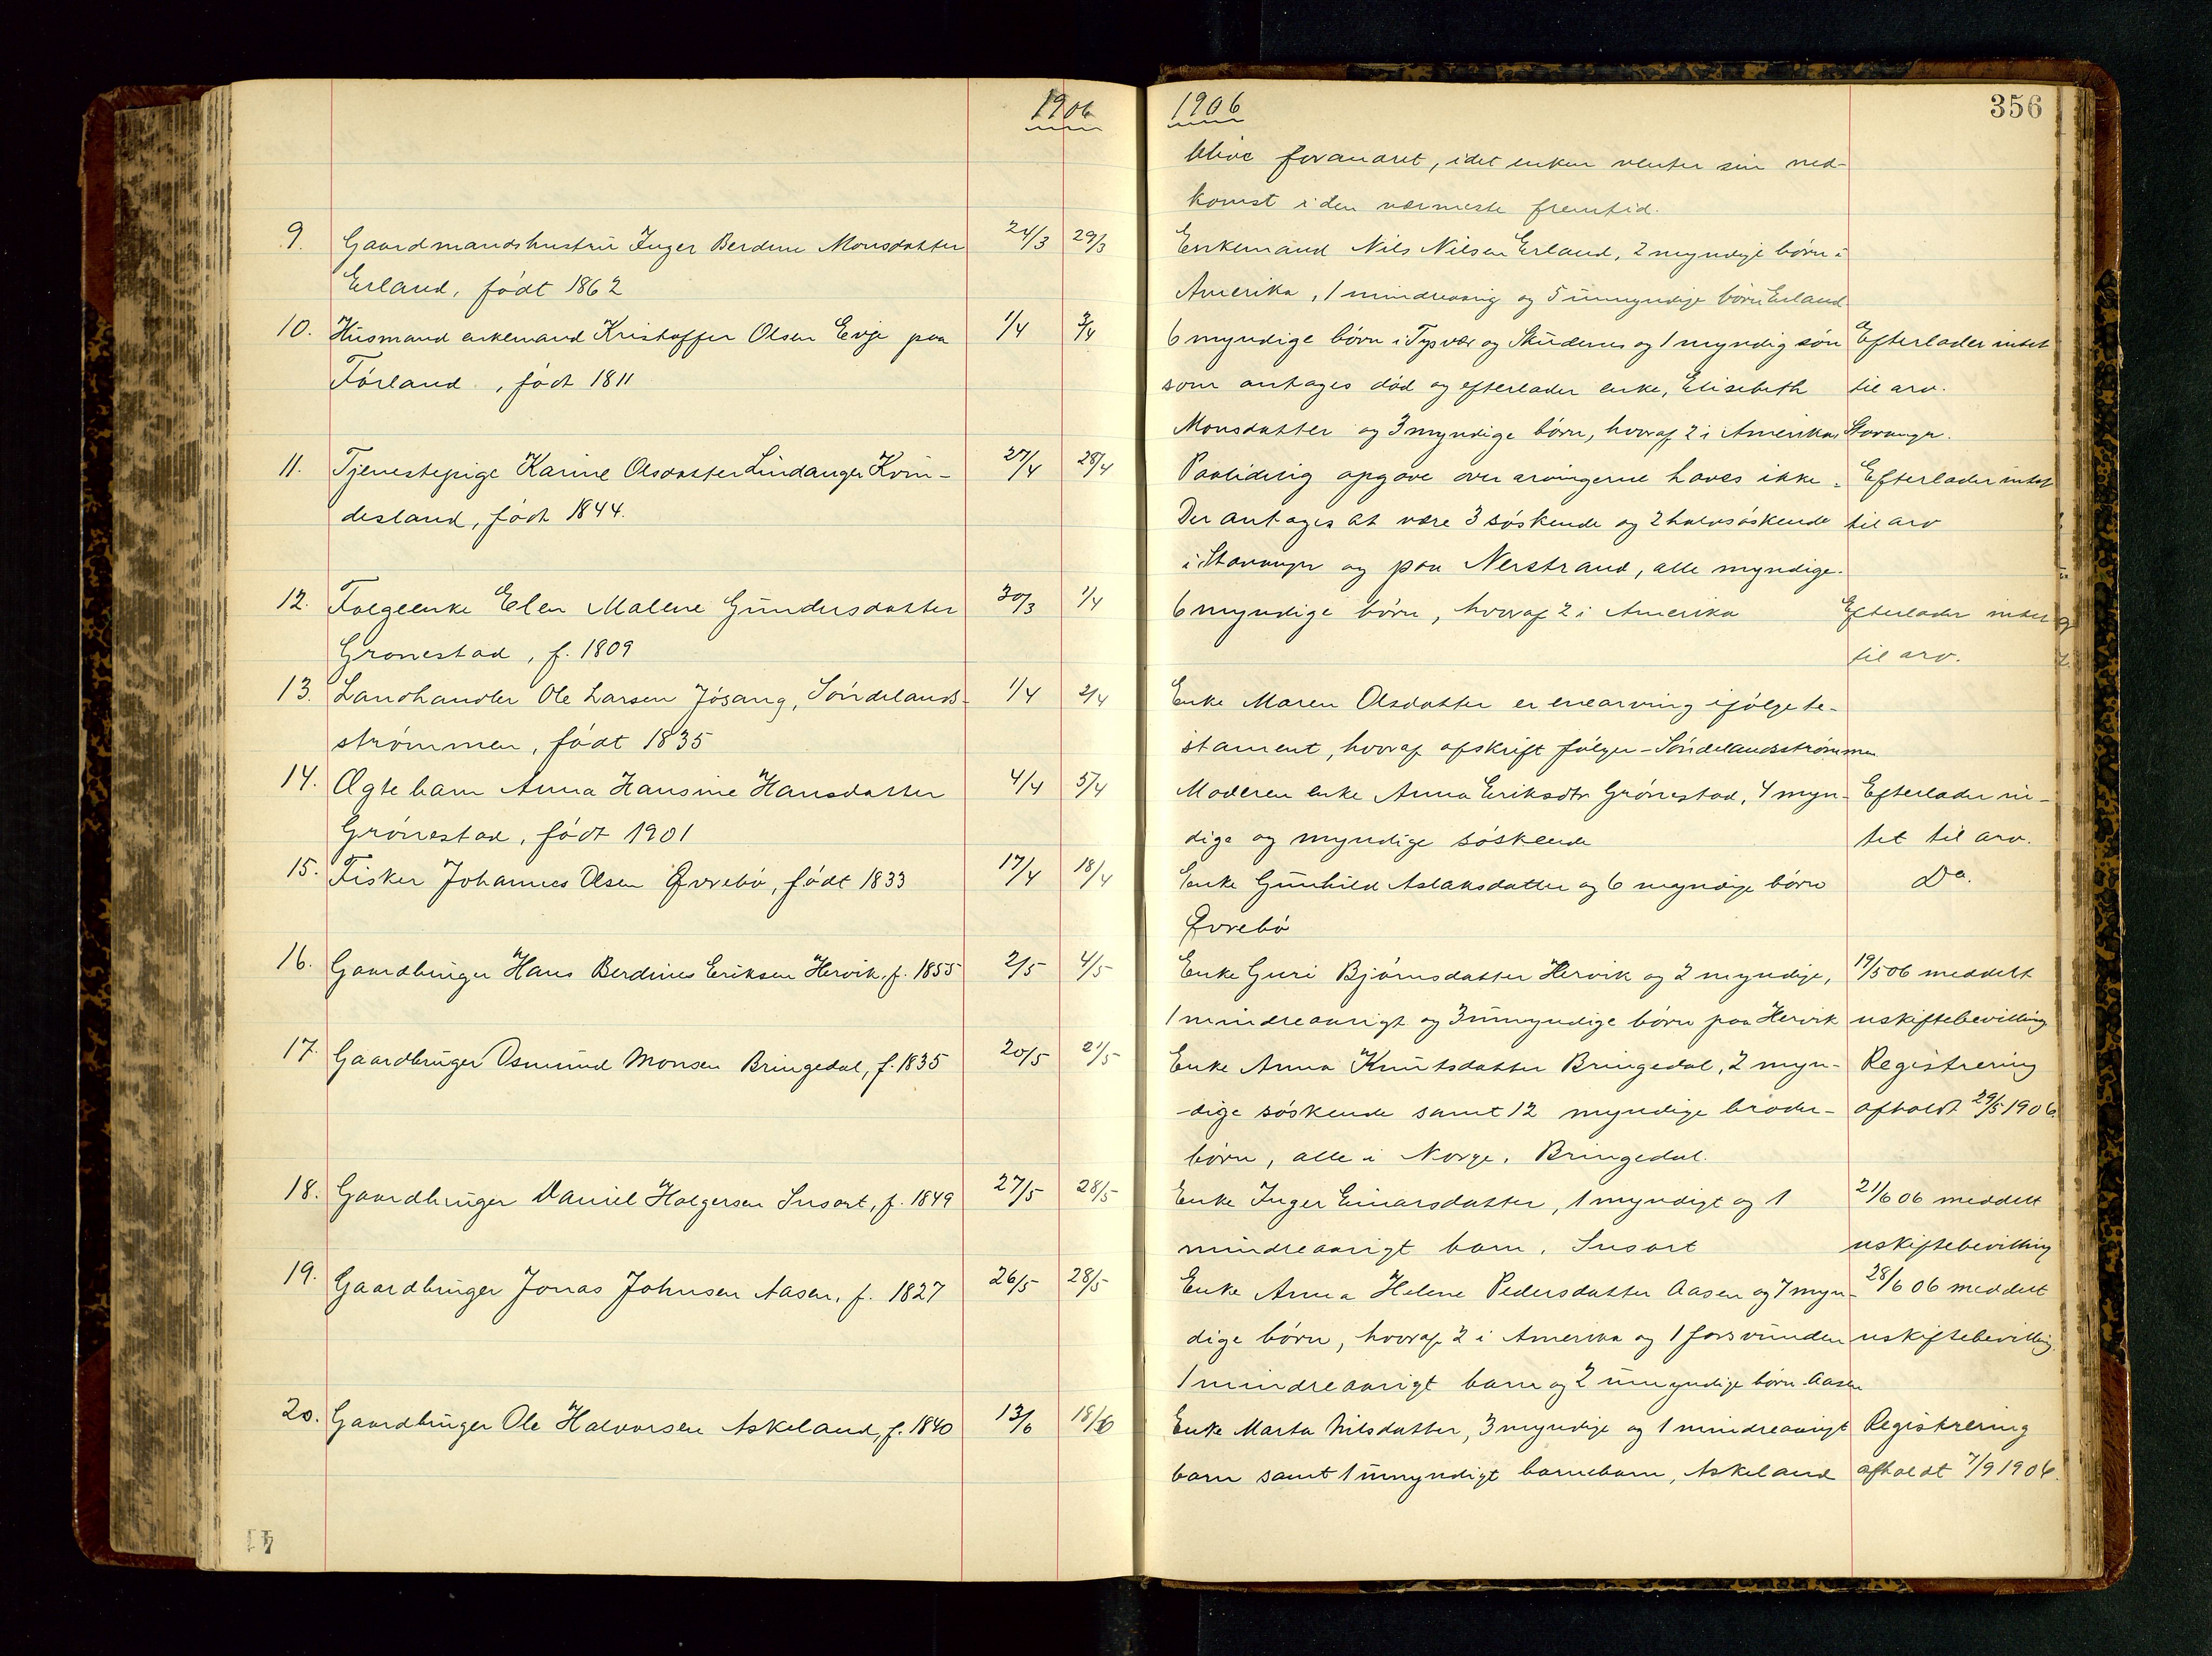 1906
9. Gaardmandshustru Inger Berdine Monsdatter 24/3 29/3
Erland, født 1862
10. Husmand enkemand Kristoffer Olsen Evje paa 1/4 3/4
Førland, født 1811
11. Tjenestepige Karine Olsdatter Lindanger Kvin- 27/4 28/4
desland, født 1844.
12. Folgeenke Elen Malene Gundersdatter 30/3 1/4
Grønestad, f. 1809
13. Landhandler Ole Larsen Jøsang, Søndelands- 1/4 2/4
strømmen, født 1835
14. Ægte barn Anna Hansine Hansdatter 4/4 5/4
Grønestad, født 1901
15. Fisker Johannes Olsen Øvrebø, født 1833 17/4 18/4
16. Gaardbruger Hans Berdines Eriksen Hervik, f. 1855 2/5 4/5
17. Gaardbruger Osmund Monsen Bringedal, f. 1835 20/5 21/5
18. Gaardbruger Daniel Holgersen Susort, f. 1849 27/5 28/5
19. Gaardbruger Jonas Johnsen Aasen, f. 1827 26/5 28/5
20. Gaardbruger Ole Halvorsen Askeland, f. 1840 13/6 18/6
1906
356
blive forandret, idet enken venter sin ned-
komst i den nærmeste fremtid.
Enkemand Nils Nilsen Erland, 2 myndige børn i
Amerika, 1 mindreaarig og 5 umyndige børn Erland
6 myndige børn i Tysvær og Skudenes og 1 myndig søn Efterlader intet
som antages død og efterlader enke, Elisebeth til arv.
Monsdatter og 3 myndige børn, hvoraf 2 i Amerika Stavanger.
Paalidelig opgave over arvingerne haves ikke. Efterlader intet
Der antages at være 3 søskende og 2 halvsøskende til arv
i Stavanger og paa Nerstrand, alle myndige.
6 myndige børn, hvoraf 2 i Amerika Efterlader intet
til arv.
Enke Maren Olsdatter er enearving ifølge te-
stament, hvoraf afskrift følger - Søndelandsstrømmen
Moderen enke Anna Eriksdtr Grønestad, 4 myn- Efterlader in-
dige og myndige søskende tet til arv.
Enke Gunhild Aslaksdatter og 6 myndige børn Do.
Øvrebø
Enke Guri Bjørnsdatter Hervik og 2 myndige, 19/5 06 meddelt
1 mindreaarigt og 3 umyndige børn paa Hervik uskiftebevilling
Enke Anna Knutsdatter Bringedal, 2 myn- Registrering
dige søskende samt 12 myndige broder- afholdt 29/5 1906
børn, alle i Norge. Bringedal.
Enke Inger Einarsdatter, 1 myndigt og 1 21/6 06 meddelt
mindreaarigt barn. Susort uskiftebevilling
Enke Anna Helene Pedersdatter Aasen og 7 myn- 28/6 06 meddelt
dige børn, hvoraf 2 i Amerika og 1 forsvunden uskiftebevilling.
1 mindreaarigt barn og 2 umyndige børn Aasen
Enke Marta Nilsdatter, 3 myndige og 1 mindreaarigt Registrering
barn samt 1 umyndigt barnebarn, Askeland afholdt 7/9 1906.